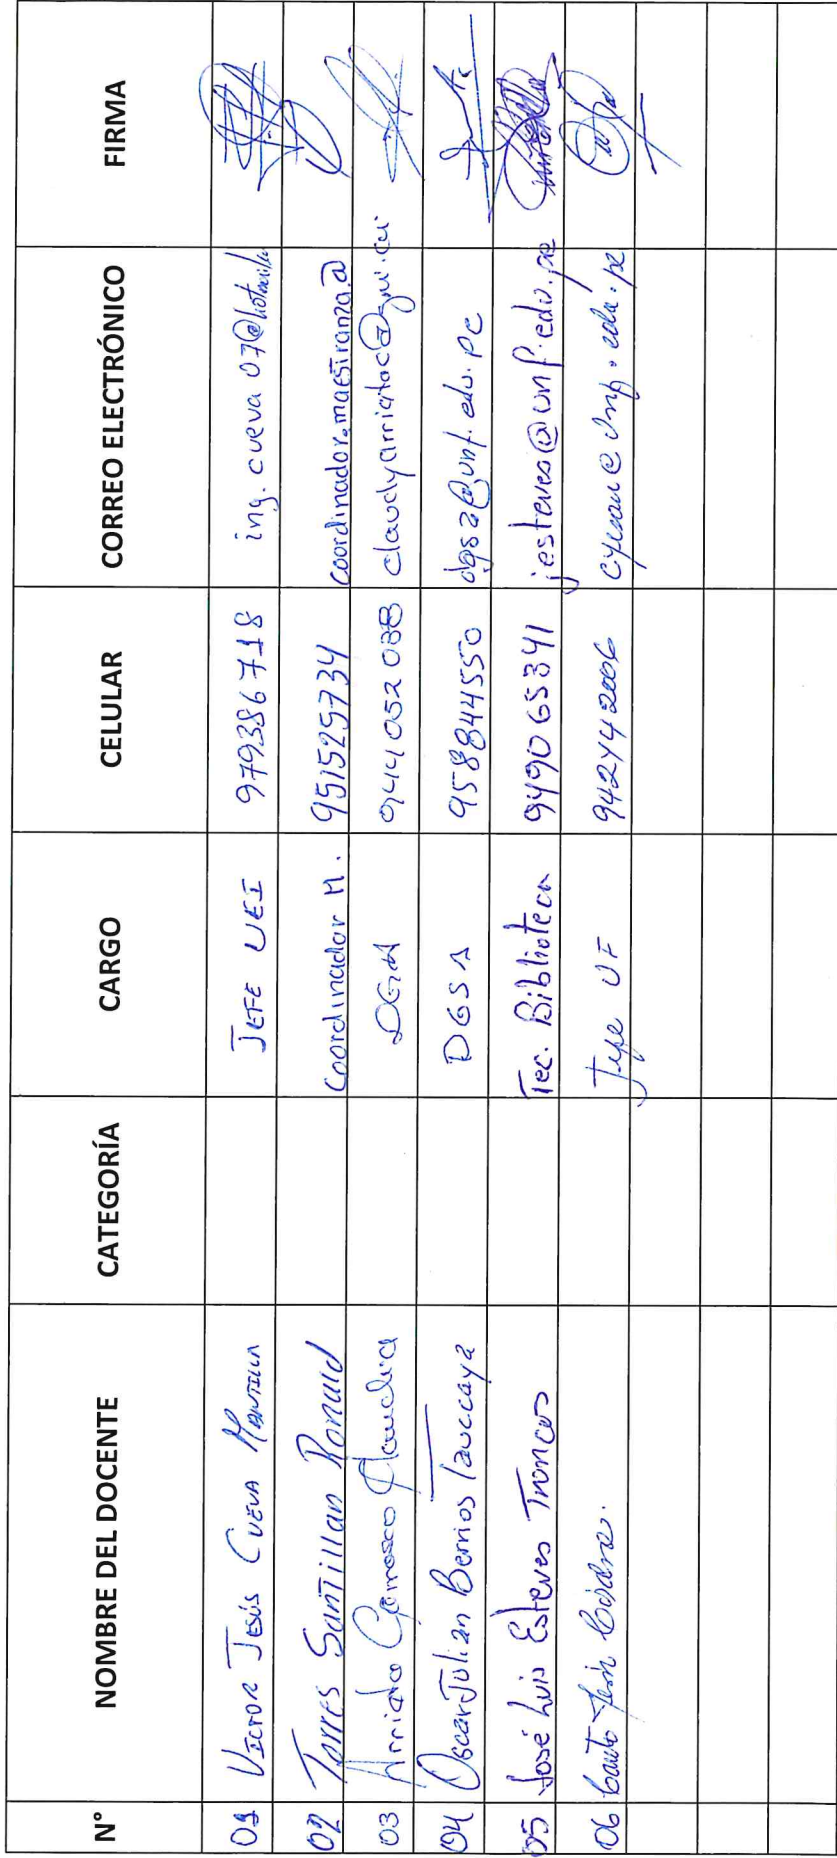 N° NOMBRE DEL DOCENTE CATEGORÍA CARGO CELULAR CORREO ELECTRÓNICO FIRMA
01 VICTOR JESÚS CUEVA JEFE UEI 979386718 ing.cueva07@hotmail
02 Torres Santillan Ronald Coordinador M. 951525734 coordinador.maestranza@
03 Arrieta Claudia DGA 944052088
04 Oscar Julián Berrios Tauccaya DGSA 958844550 dgsa@unf.edu.pe
05 José Luis Esteves Troncos Tec. Biblioteca 949065341 jesteves@unf.edu.pe
06 Jefe UF 942442006